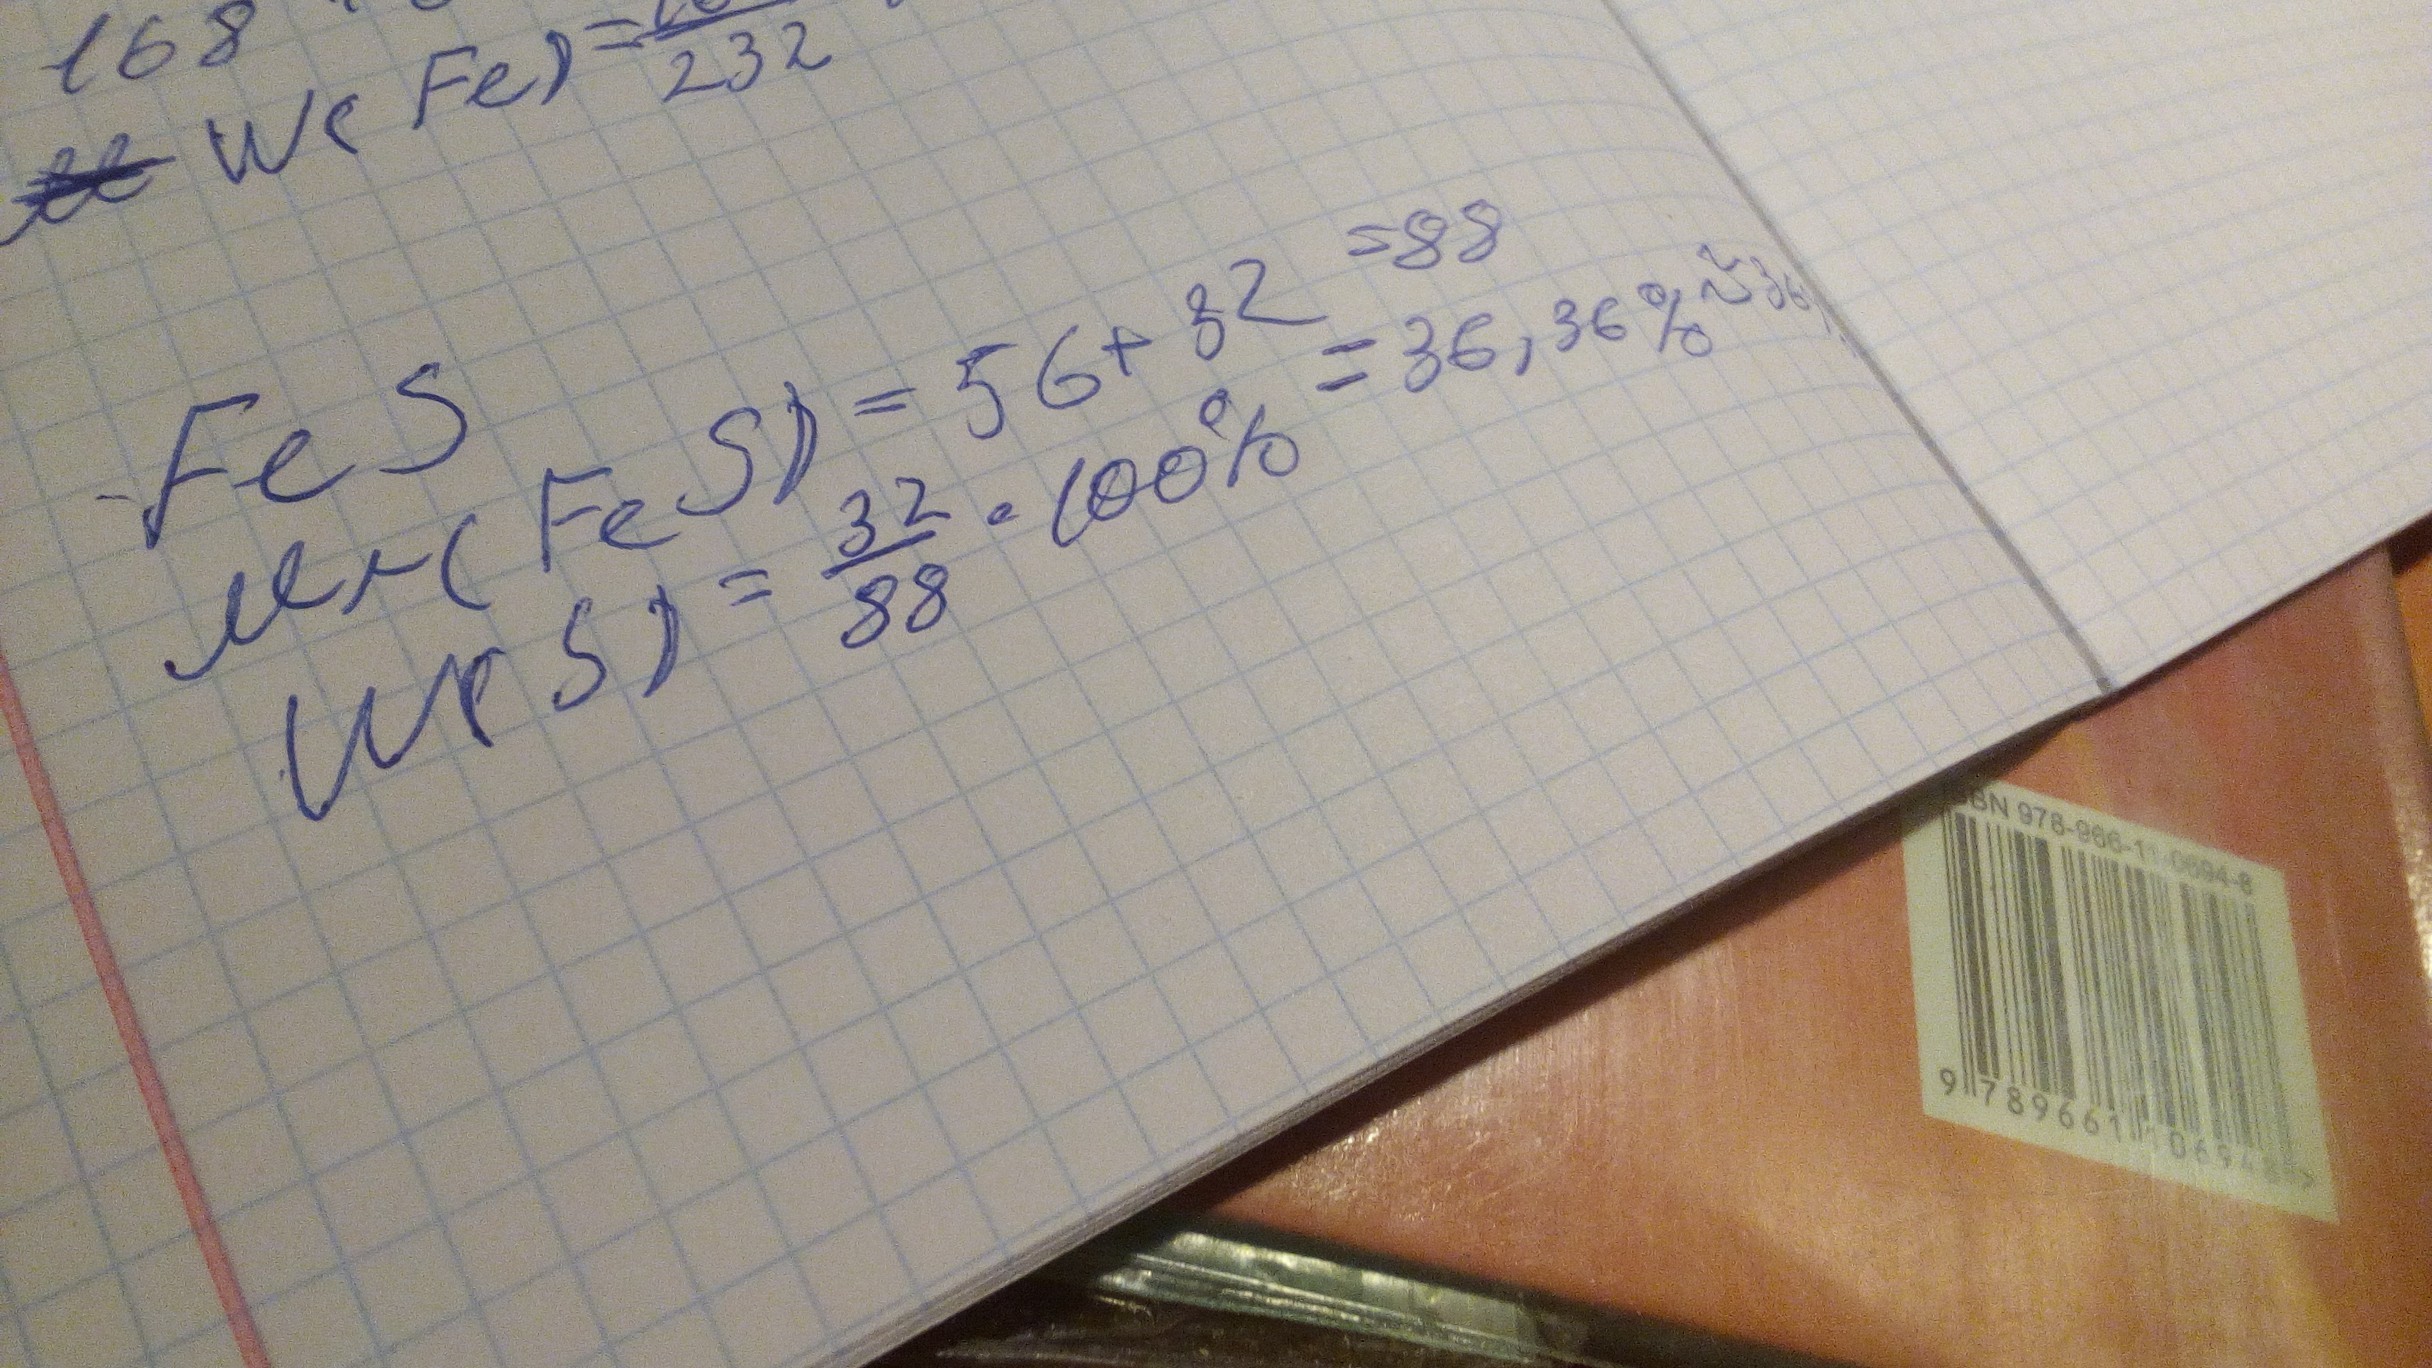 168
W(Fe) = 232
FeS
Mr(FeS) = 56+32 = 88
W(S) = 32/88 · 100% = 36,36% ≈ 36
ISBN 978-966-11-0694-8
9 789661 106948 >